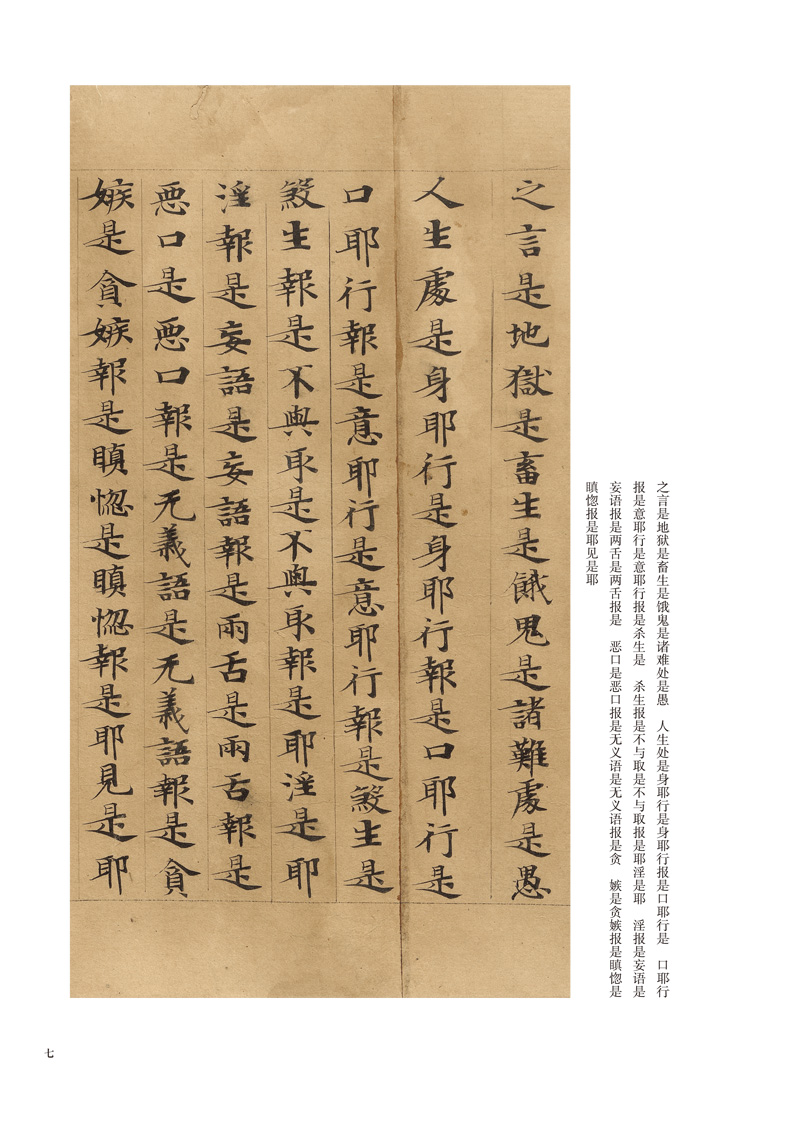 之言是地狱是畜生是饿鬼是诸难处是愚　人生处是身耶行是身耶行报是口耶行是　口耶行
报是意耶行是意耶行报是杀生是　杀生报是不与取是不与取报是耶淫是耶　淫报是妄语是
妄语报是两舌是两舌报是　恶口是恶口报是无义语是无义语报是贪　嫉是贪嫉报是瞋惚是
瞋惚报是耶见是耶
之言是地獄是畜生是餓鬼是諸難處是愚
人生處是身耶行是身耶行報是口耶行是
口耶行報是意耶行是意耶行報是煞生是
煞生報是不與取是不與取報是耶淫是耶
淫報是妄語是妄語報是兩舌是兩舌報是
惡口是惡口報是无義語是无義語報是貪
嫉是貪嫉報是瞋惚是瞋惚報是耶見是耶
七